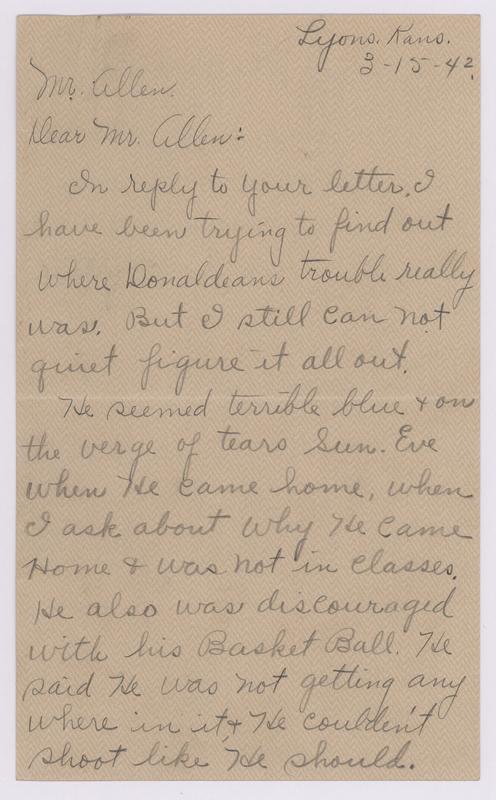 Lyons. Kans.
3-15-42.
Mr. Allen.
Dear Mr. Allen:
In reply to your letter, I
have been trying to find out
where Donaldeans trouble really
was. But I still can not
quiet figure it all out.
He seemed terrible blue & on
the verge of tears Sun. Eve
when He came home, when
I ask about why He came
Home & was not in classes.
He also was discouraged
with his Basket Ball. He
said He was not getting any
where in it & He coulden't
shoot like He should.